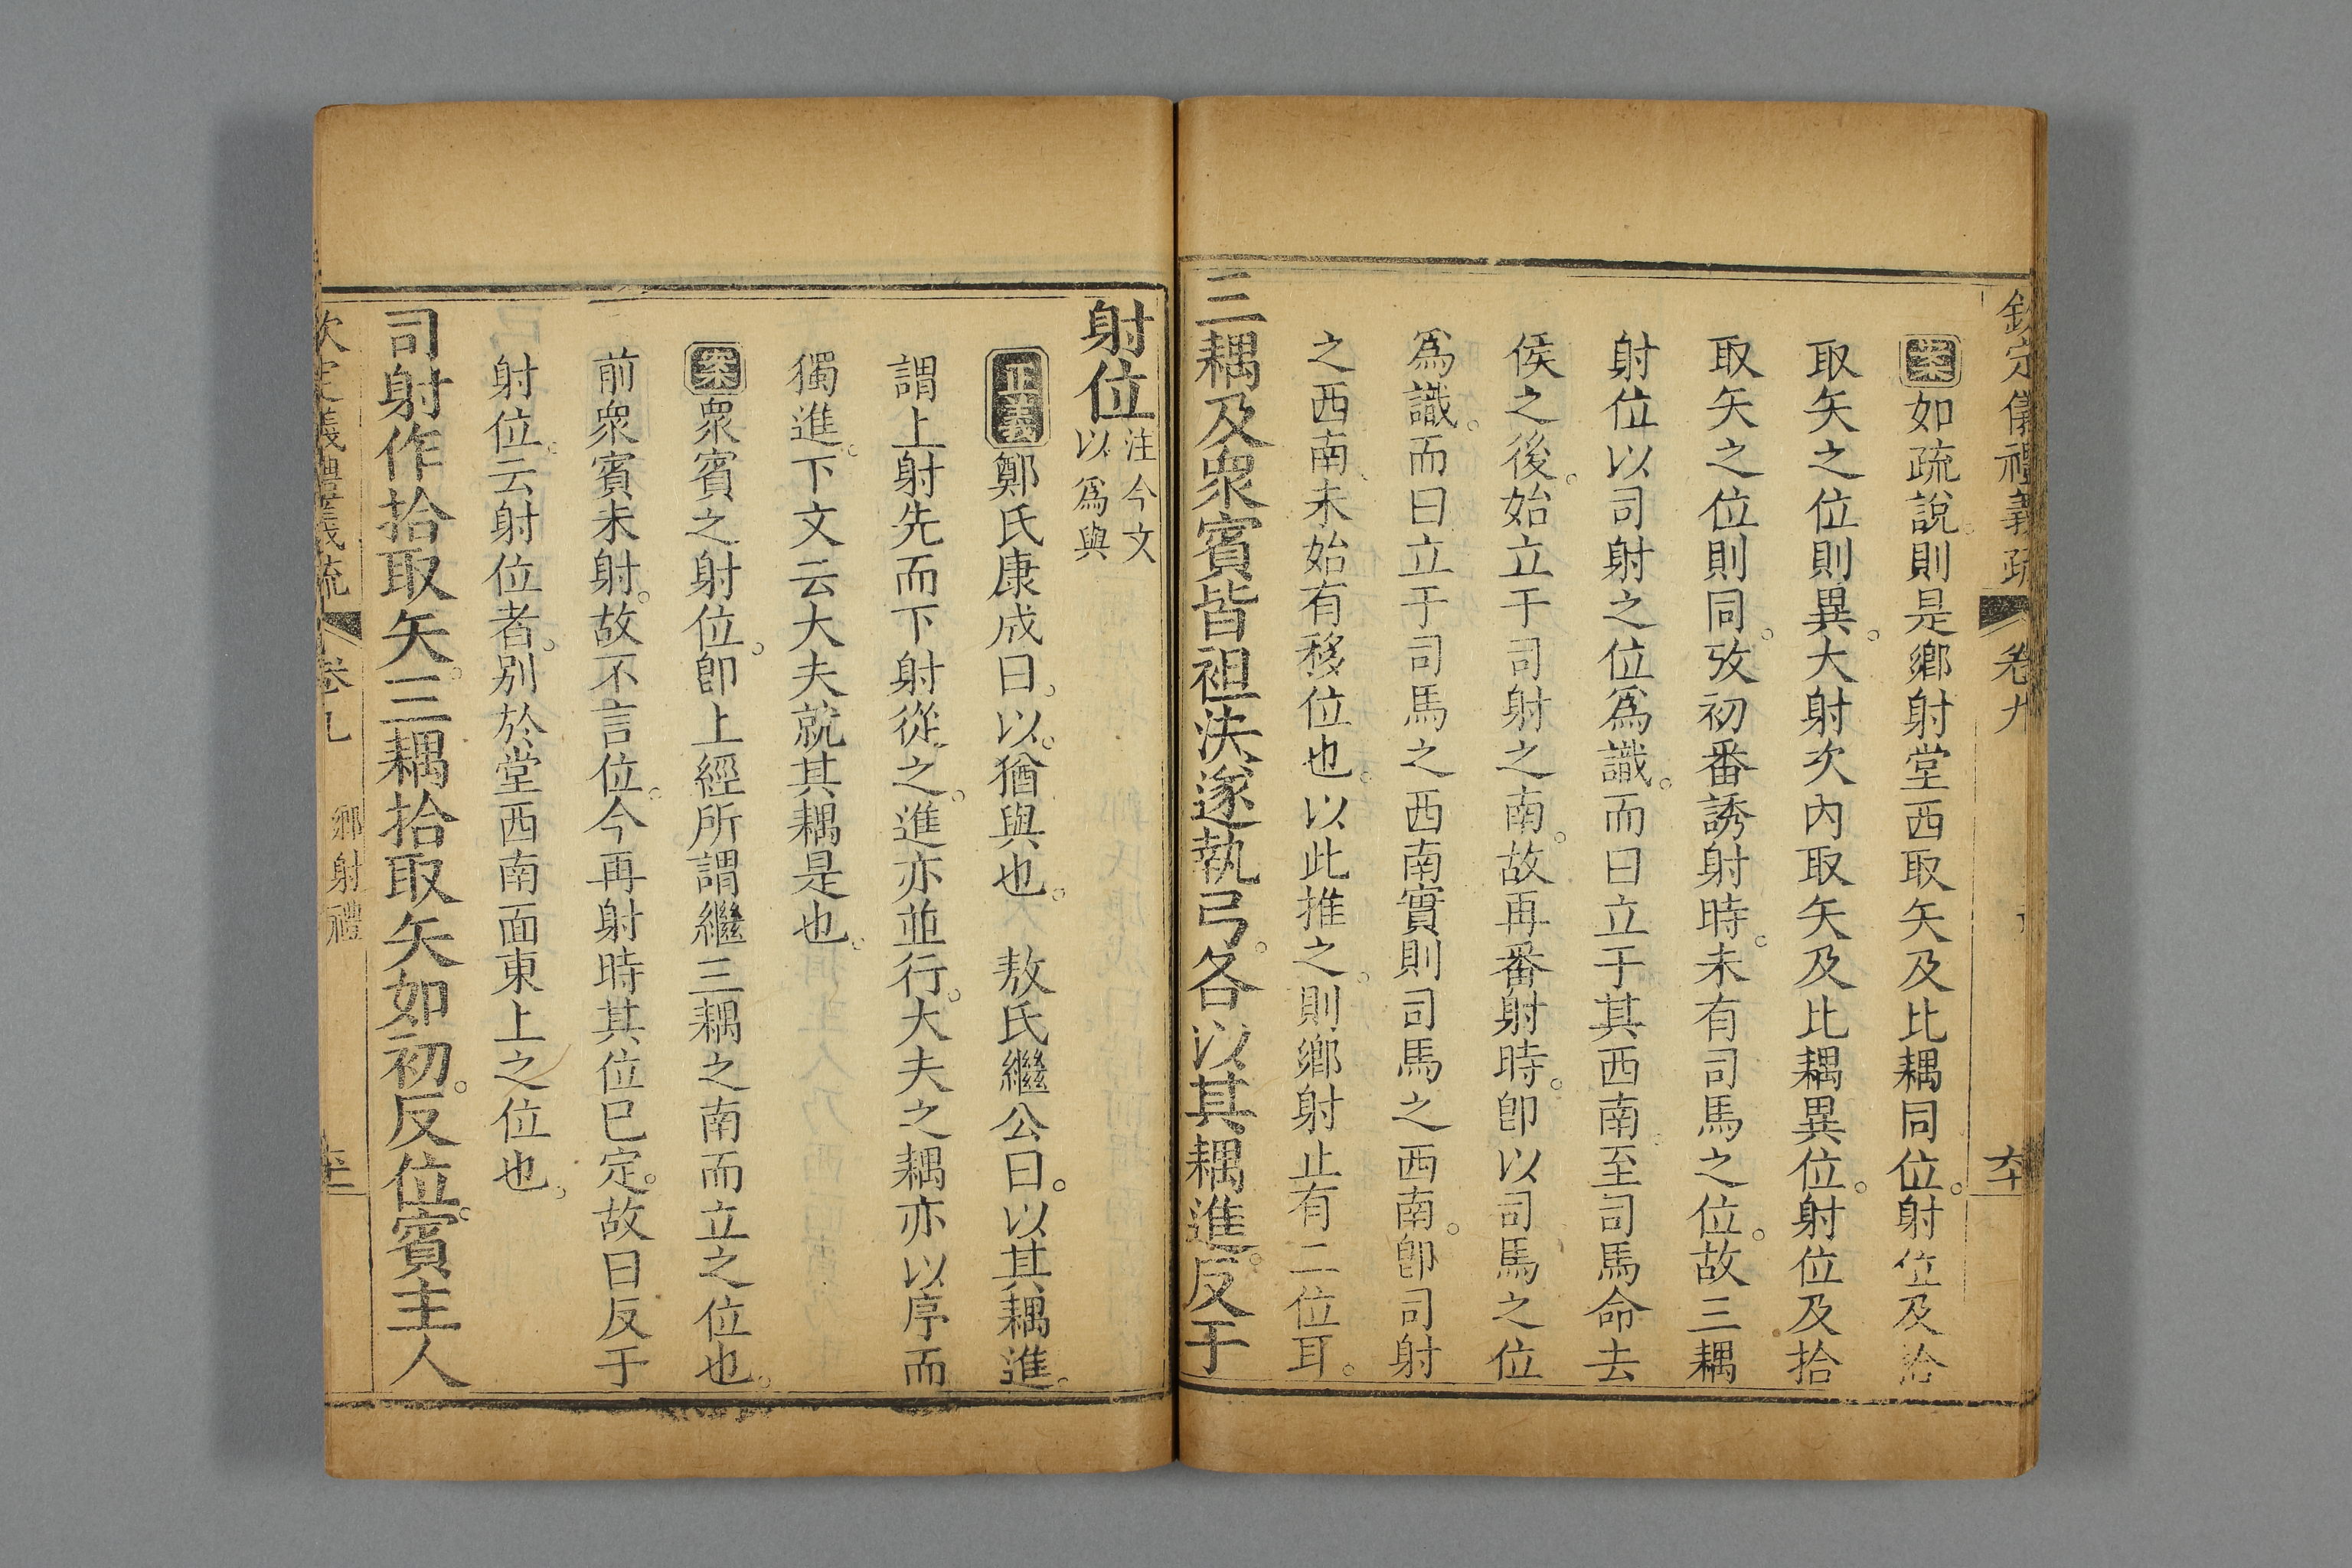 欽定儀禮義疏 卷九 六十
案如疏說則是鄉射堂西取矢及比耦同位。射位及拾
取矢之位則異。大射次內取矢及比耦異位。射位及拾
取矢之位則同。攷初番誘射時。未有司馬之位。故三耦
射位以司射之位爲識。而曰立于其西南。至司馬命去
侯之後。始立于司射之南。故再番射時。卽以司馬之位
爲識。而曰立于司馬之西南實則司馬之西南。卽司射
之西南。未始有移位也。以此推之。則鄉射止有二位耳。
三耦及衆賓皆袒決遂執弓。各以其耦進。反于
射位
注今文
以爲與
正義鄭氏康成曰。以。猶與也。 敖氏繼公曰。以其耦進。
謂上射先而下射從之。進亦並行。大夫之耦亦以序而
獨進。下文云大夫就其耦是也。
案衆賓之射位。卽上經所謂繼三耦之南而立之位也。
前衆賓未射。故不言位。今再射時其位已定。故曰反于
射位。云射位者。別於堂西南面東上之位也。
司射作拾取矢。三耦拾取矢如初。反位。賓主人
欽定儀禮義疏 卷九 鄉射禮